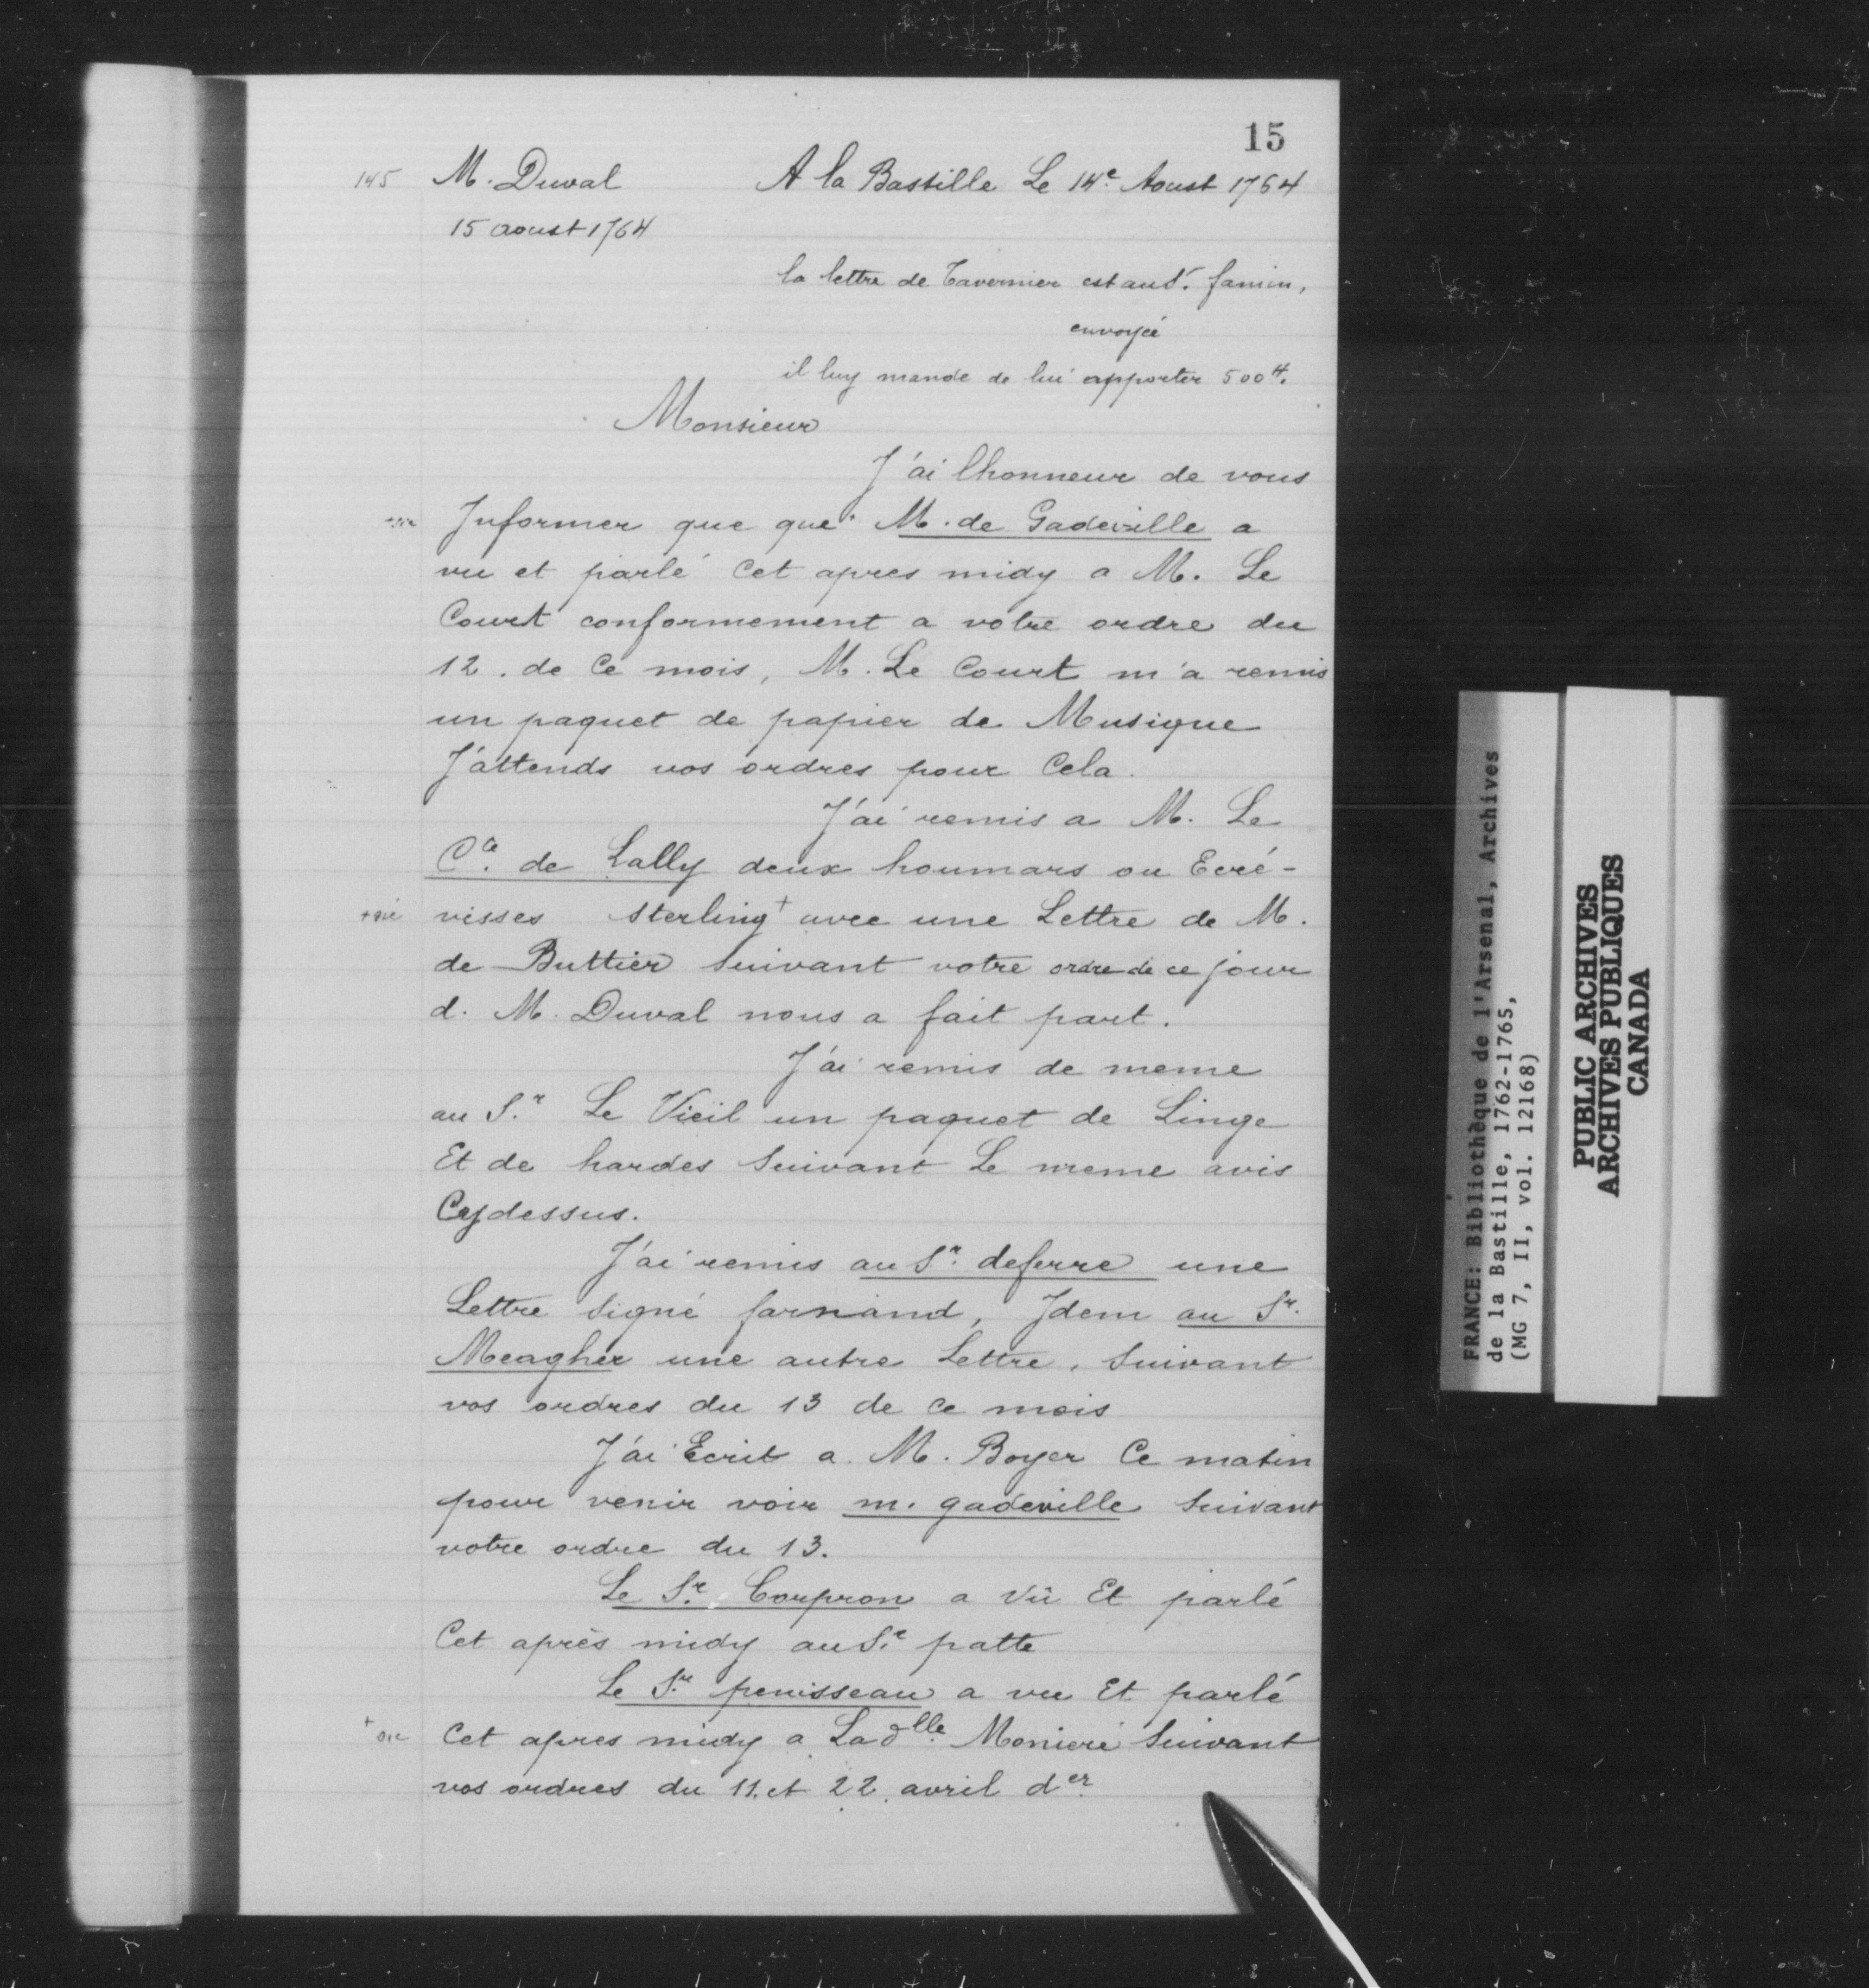 15
145 M. Duval A la Bastille Le 14e. Aoust 1764
15 aoust 1764
la lettre de Tavernier est au Sr. famin,
envoyée
il luy mande de lui apporter 500#.
Monsieur
J'ai lhonneur de vous
Informer que que M. de Gadeville a
vu et parlé Cet apres midy a M. Le
Court conformement a votre ordre du
12. de Ce mois, M. Le Court m'a remis
un paquet de papier de Musique
J'attends vos ordres pour Cela.
J'ai remis a M. Le
Cte. de Lally deux houmars ou Ecré-
+ sic visses sterling + avec une Lettre de M.
de Buttier suivant votre ordre de ce jour
d. M. Duval nous a fait part.
J'ai remis de meme
au S.r Le Vieil un paquet de Linge
Et de hardes suivant Le meme avis
Cydessus.
J'ai remis au Sr. deferre une
Lettre signé farnand, Idem au Sr.
Meagher une autre Lettre, suivant
vos ordres du 13 de Ce mois
J'ai Ecrit a M. Boyer Ce matin
pour venir voir m. gadeville suivant
votre ordre du 13.
Le Sr. Corpron a Vû Et parlé
Cet après midy au Sr. patte
Le Sr. penisseau a vu Et parlé
+ sic Cet apres midy a Ladlle. Monieri suivant
vos ordres du 11. et 22. avril der.
FRANCE: Bibliothèque de l'Arsenal, Archives
de la Bastille, 1762-1765,
(MG 7, II, vol. 12168)
PUBLIC ARCHIVES
ARCHIVES PUBLIQUES
CANADA